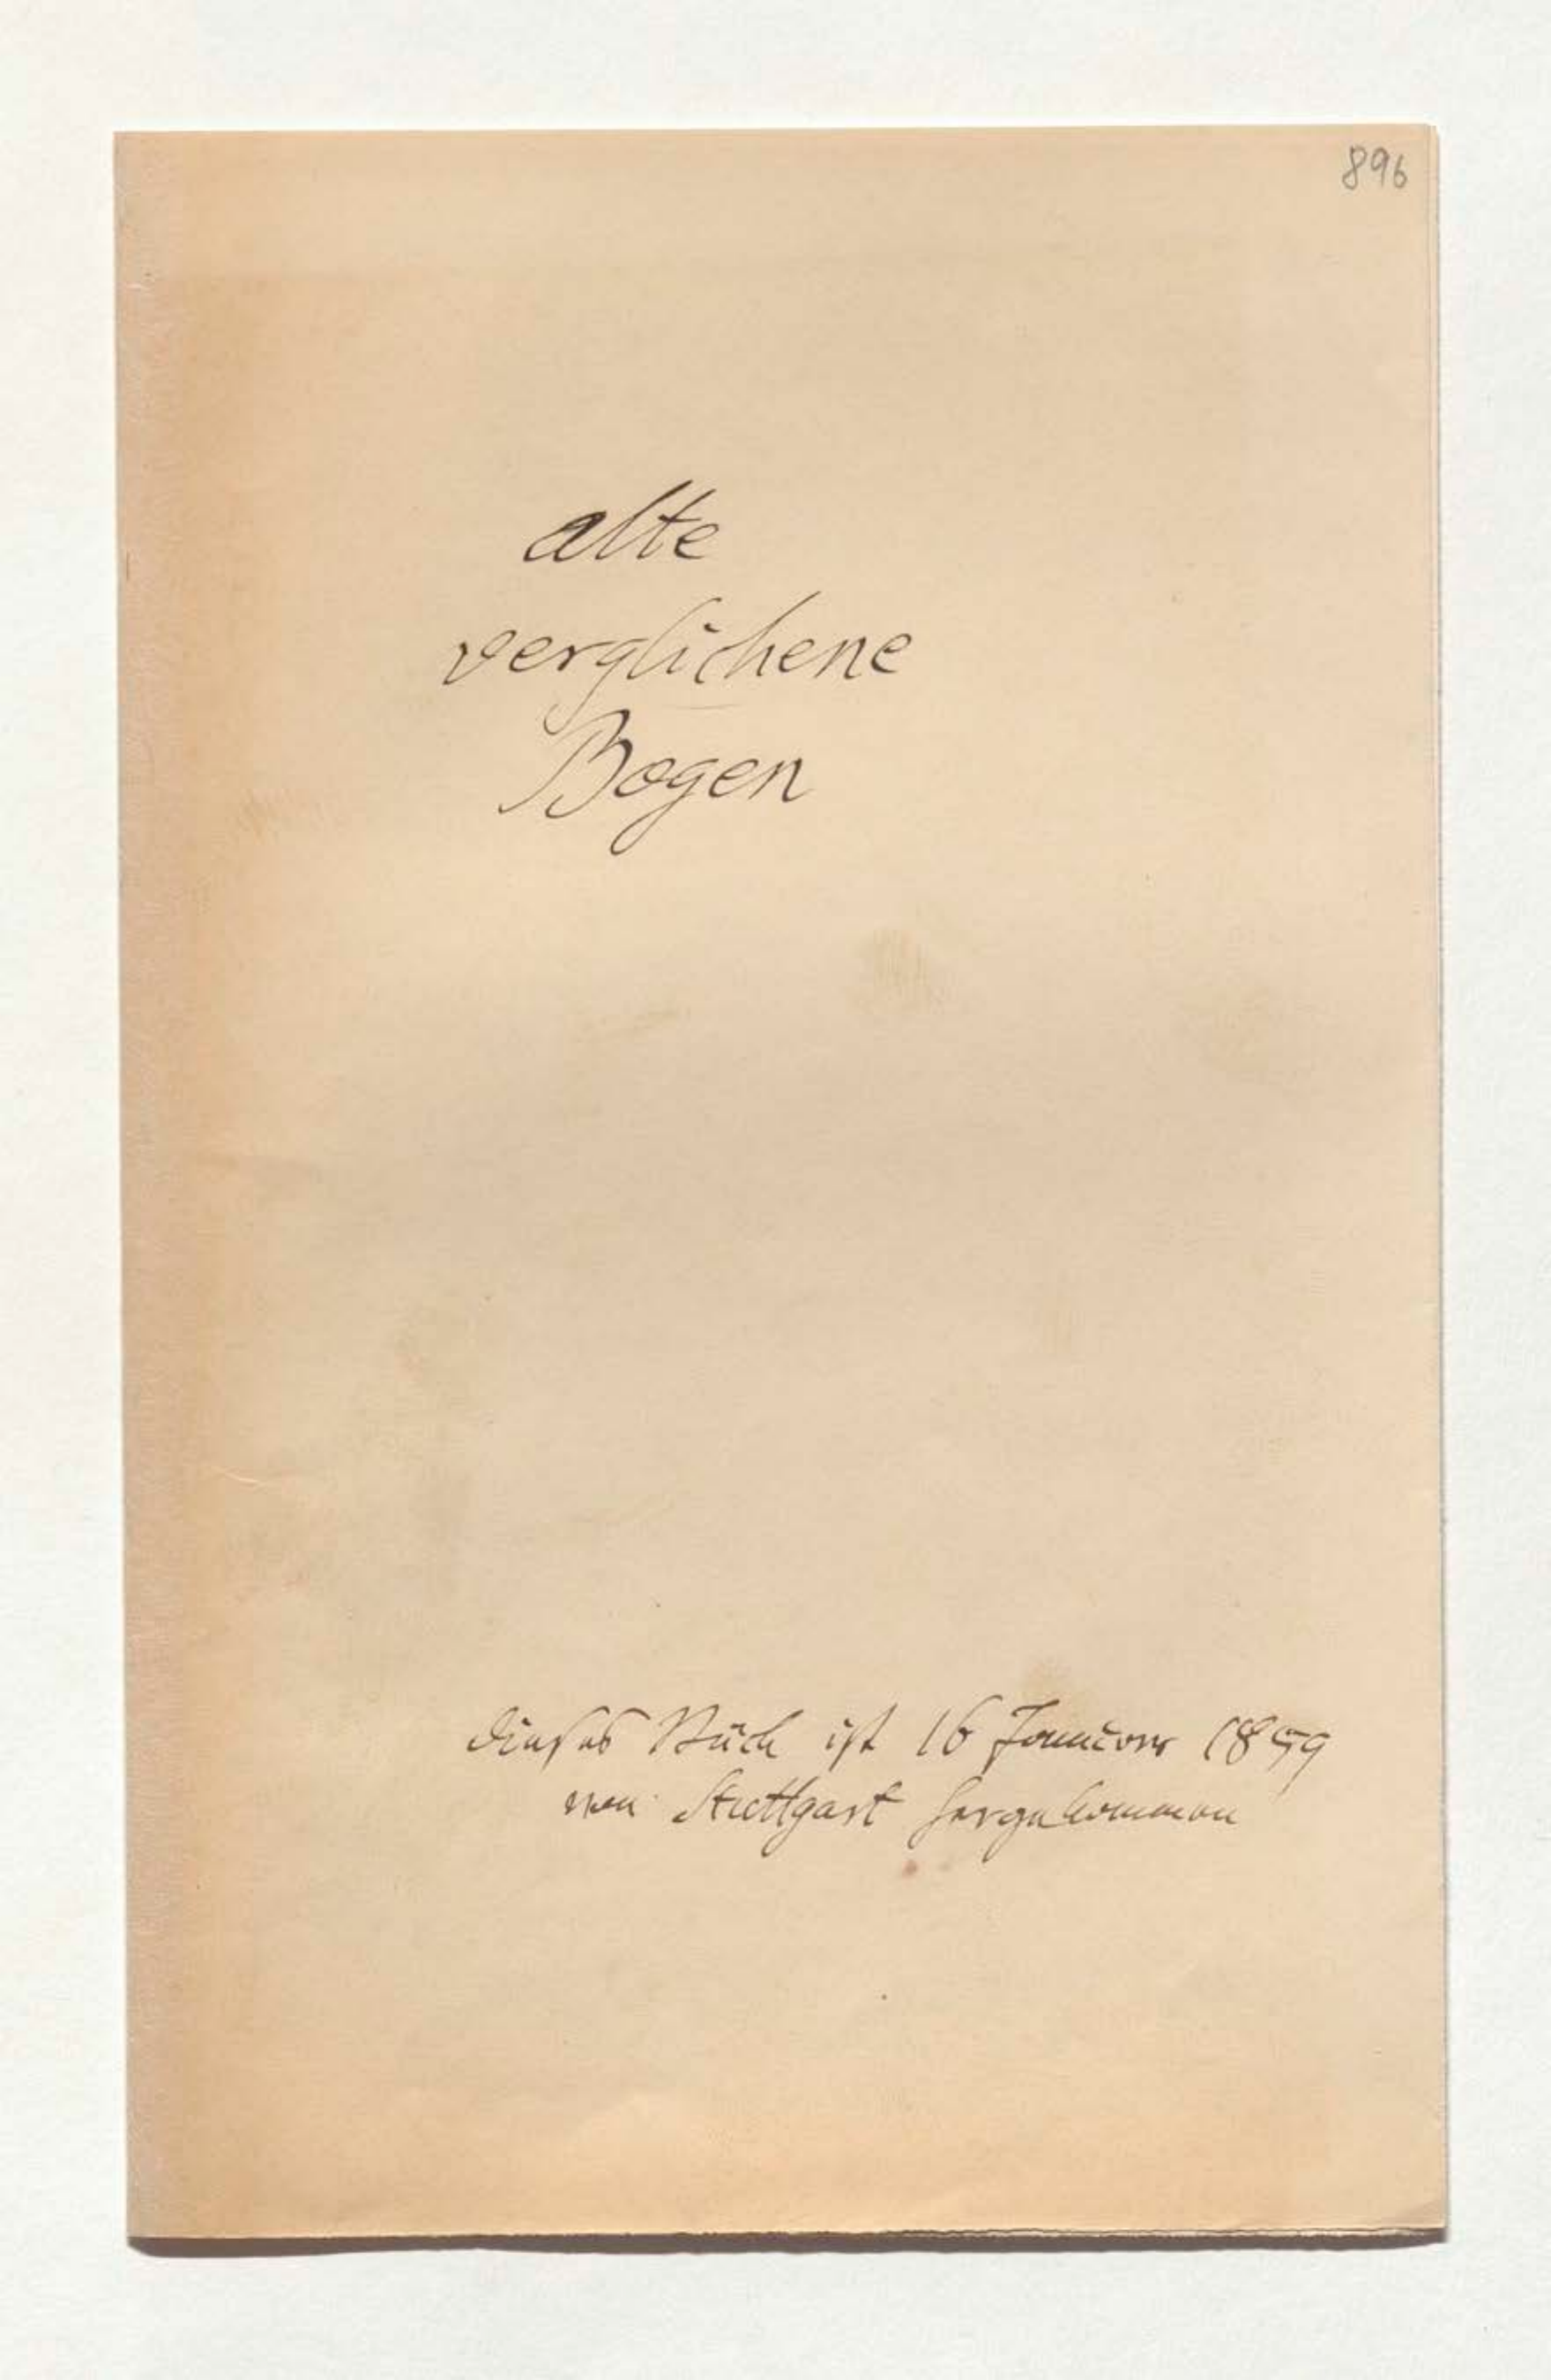 896
alte
verglichene
Bogen
dieses Buch ist 16 Januar 1859
von Stuttgart hergekommen